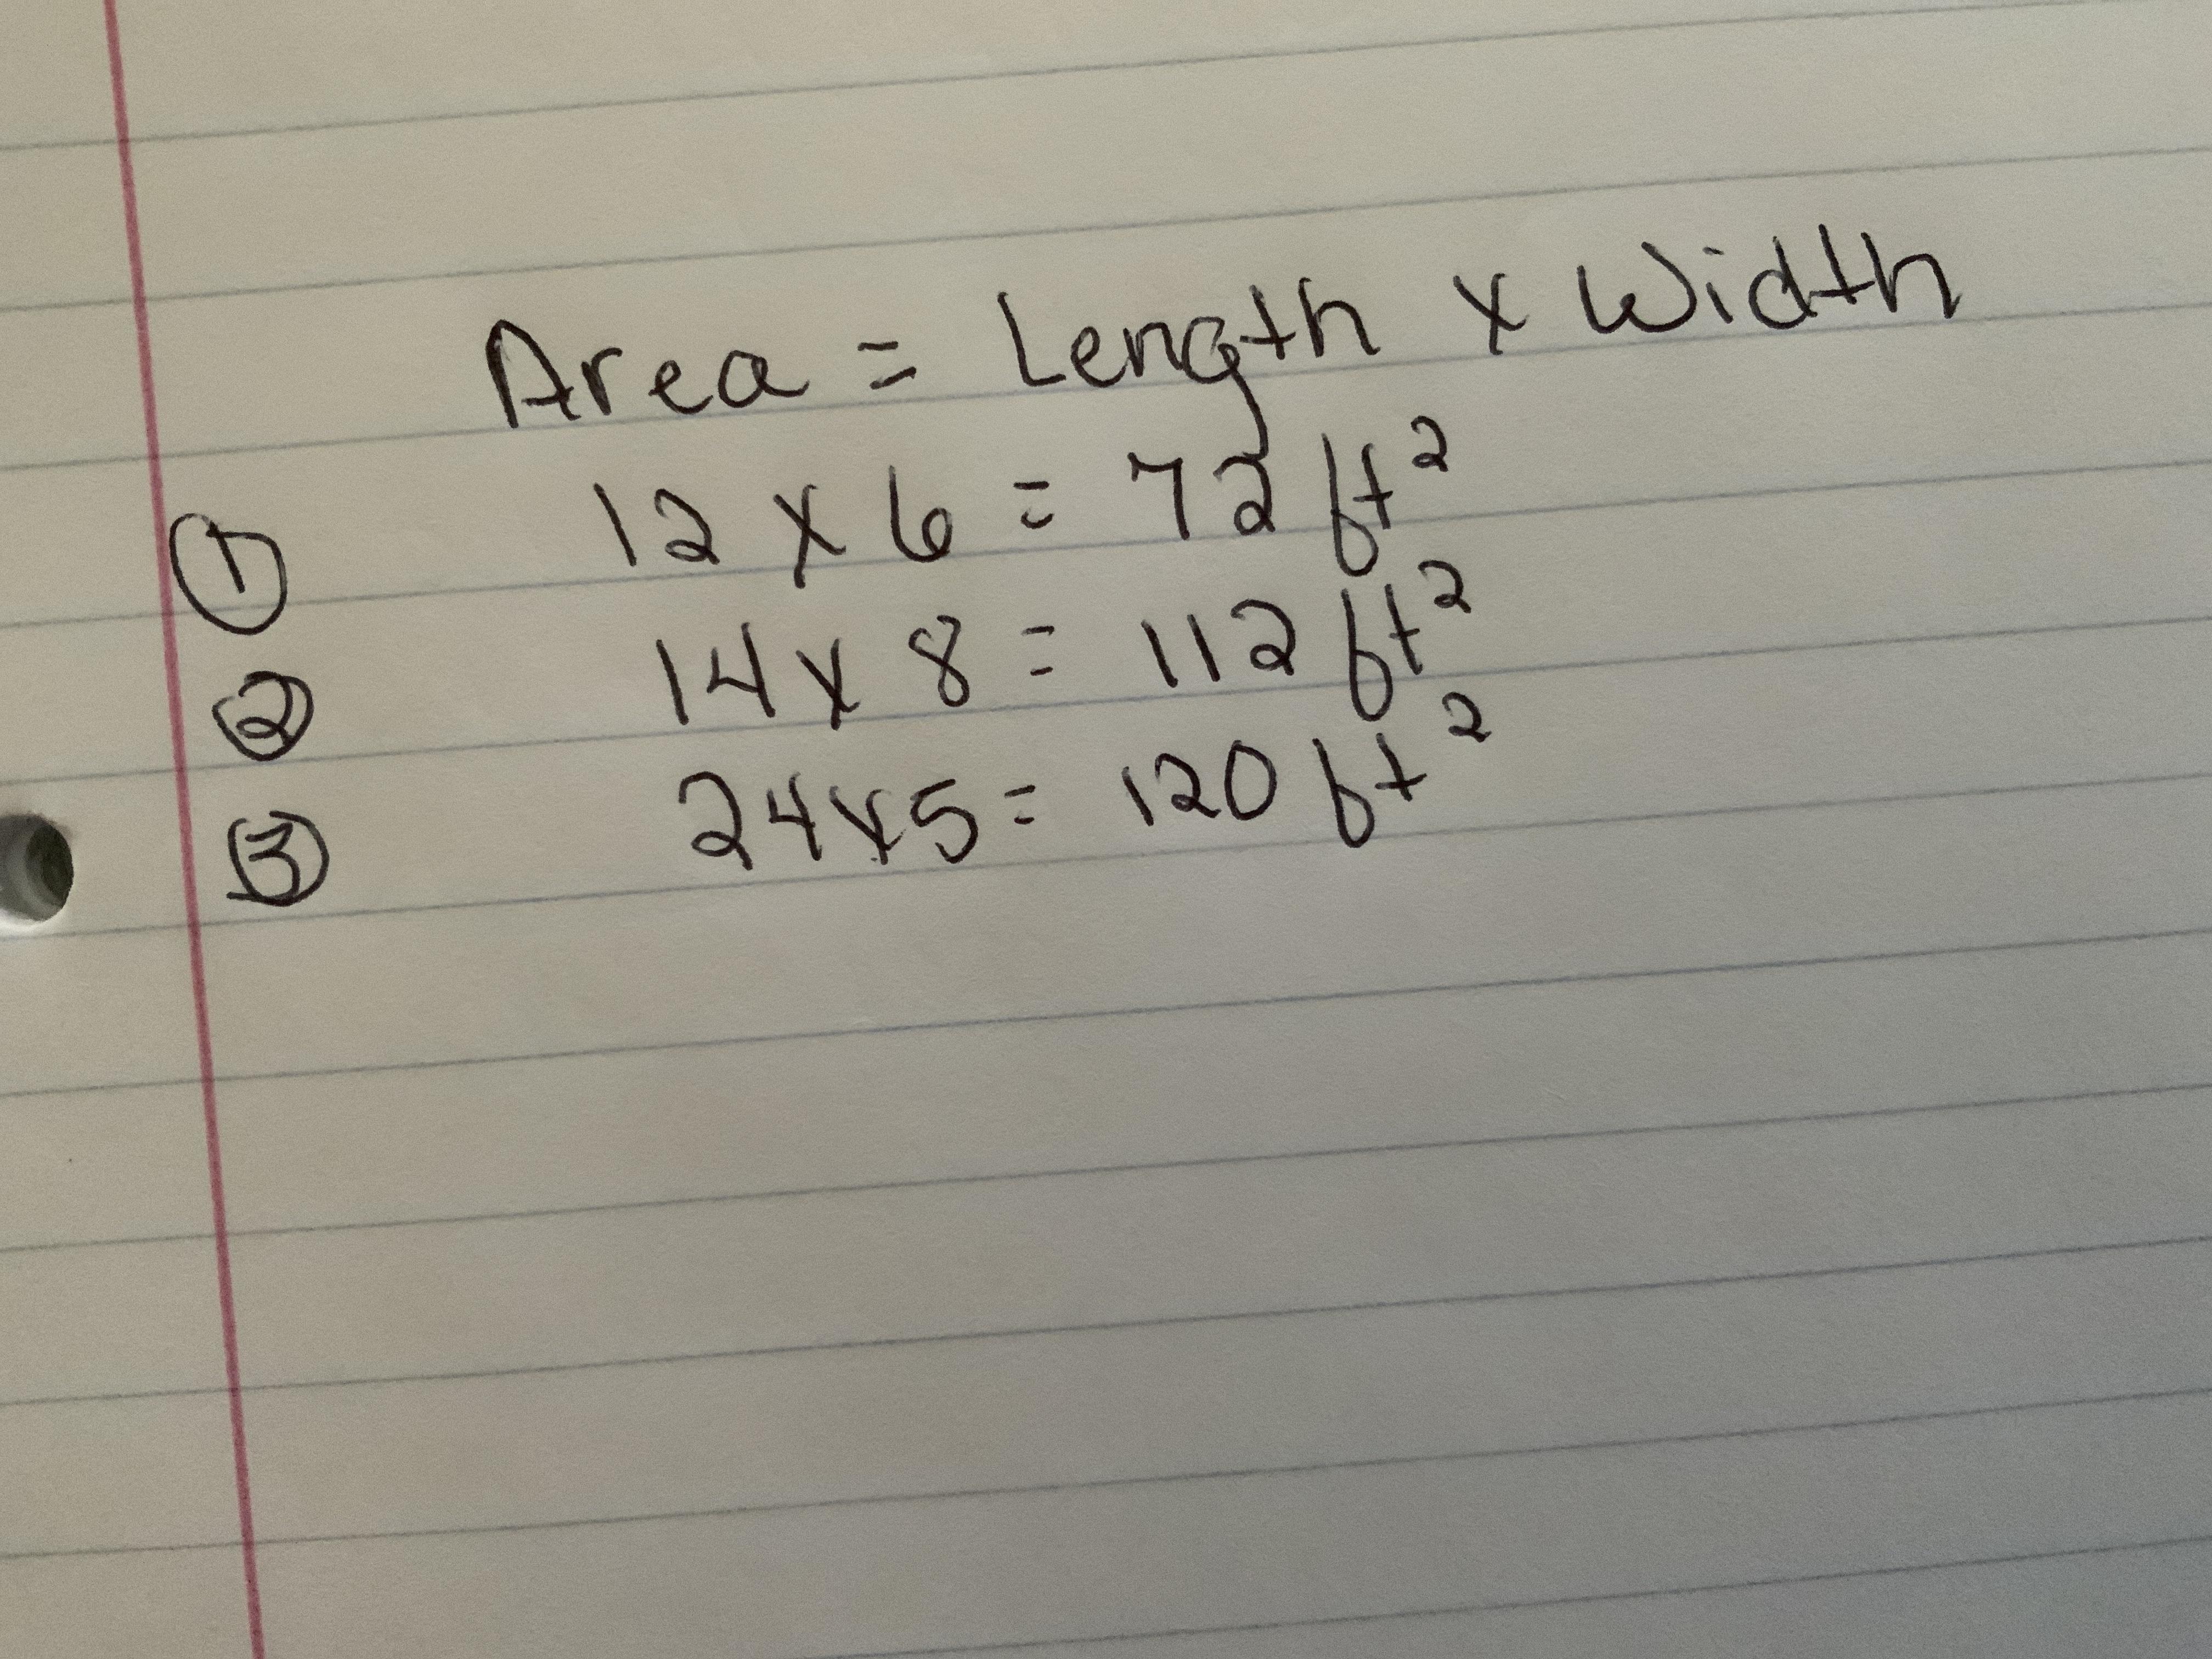 Area = Length x Width
① 12 x 6 = 72 ft²
② 14 x 8 = 112 ft²
③ 24x5 = 120 ft²